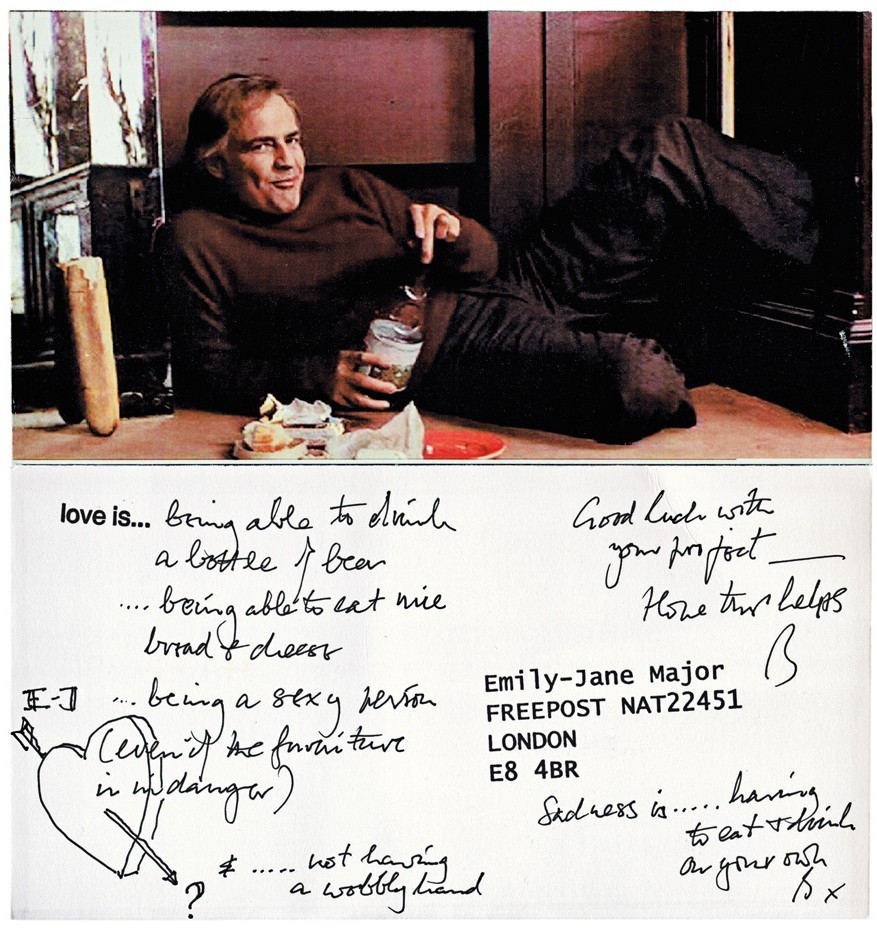 love is... being able to drink
a bottle of beer
.... being able to eat nice
bread & cheese
E-J ... being a sexy person
(even if the furniture
is in danger)
& ..... not having
a wobbly hand
?
Good luck with
your project
Hope this helps
B
Emily-Jane Major
FREEPOST NAT22451
LONDON
E8 4BR
Sadness is ..... having
to eat & drink
on your own
B x